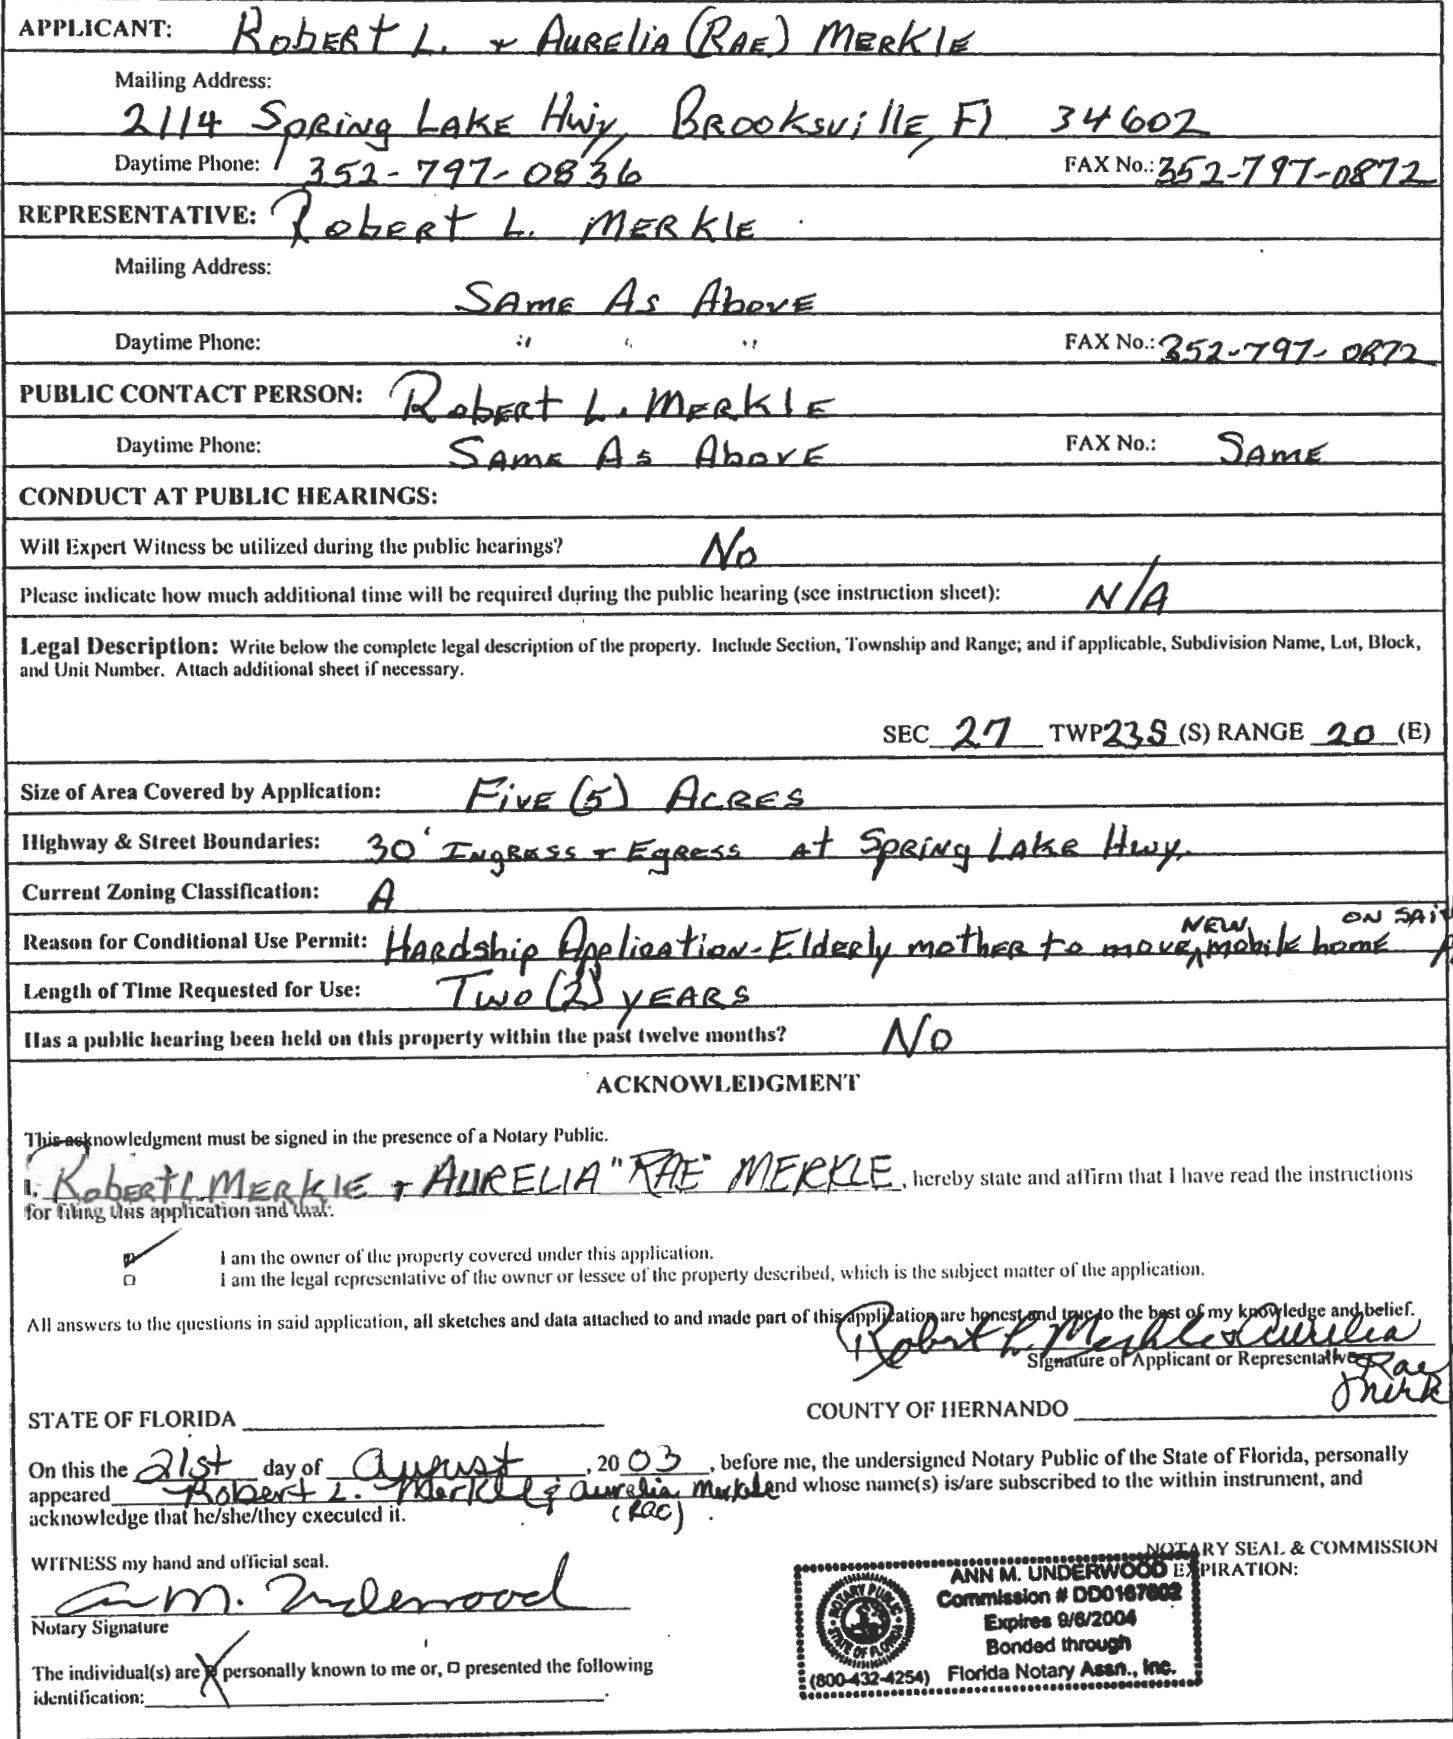 APPLICANT: Robert L. + Aurelia (Rae) Merkle
Mailing Address:
2114 Spring Lake Hwy, Brooksville, Fl 34602
Daytime Phone: 352-797-0836 FAX No.: 352-797-0872
REPRESENTATIVE: Robert L. Merkle
Mailing Address:
Same As Above
Daytime Phone: " " " FAX No.: 352-797-0872
PUBLIC CONTACT PERSON: Robert L. Merkle
Daytime Phone: Same As Above FAX No.: Same
CONDUCT AT PUBLIC HEARINGS:
Will Expert Witness be utilized during the public hearings? No
Please indicate how much additional time will be required during the public hearing (see instruction sheet): N/A
Legal Description: Write below the complete legal description of the property. Include Section, Township and Range; and if applicable, Subdivision Name, Lot, Block,
and Unit Number. Attach additional sheet if necessary.
SEC 27 TWP 23S (S) RANGE 20 (E)
Size of Area Covered by Application: Five (5) Acres
Highway & Street Boundaries: 30' Ingress + Egress at Spring Lake Hwy.
Current Zoning Classification: A
Reason for Conditional Use Permit: Hardship Application - Elderly mother to move NEW mobile home ON SAID
Length of Time Requested for Use: Two (2) years
Has a public hearing been held on this property within the past twelve months? No
ACKNOWLEDGMENT
This acknowledgment must be signed in the presence of a Notary Public.
I, Robert L. Merkle + Aurelia "Rae" Merkle, hereby state and affirm that I have read the instructions
for filing this application and that:
I am the owner of the property covered under this application.
I am the legal representative of the owner or lessee of the property described, which is the subject matter of the application.
All answers to the questions in said application, all sketches and data attached to and made part of this application are honest and true to the best of my knowledge and belief.
Robert L. Merkle & Aurelia
Signature of Applicant or Representative Rae
Merk
STATE OF FLORIDA COUNTY OF HERNANDO
On this the 21st day of August, 2003, before me, the undersigned Notary Public of the State of Florida, personally
appeared Robert L. Merkle & Aurelia Merkle and whose name(s) is/are subscribed to the within instrument, and
acknowledge that he/she/they executed it. (Rae)
WITNESS my hand and official seal. NOTARY SEAL & COMMISSION
EXPIRATION:
Ann M. Underwood
Notary Signature
The individual(s) are personally known to me or, presented the following
identification:
ANN M. UNDERWOOD
Commission # DD0167802
Expires 9/6/2004
Bonded through
(800-432-4254) Florida Notary Assn., Inc.
NOTARY PUBLIC
STATE OF FLORIDA